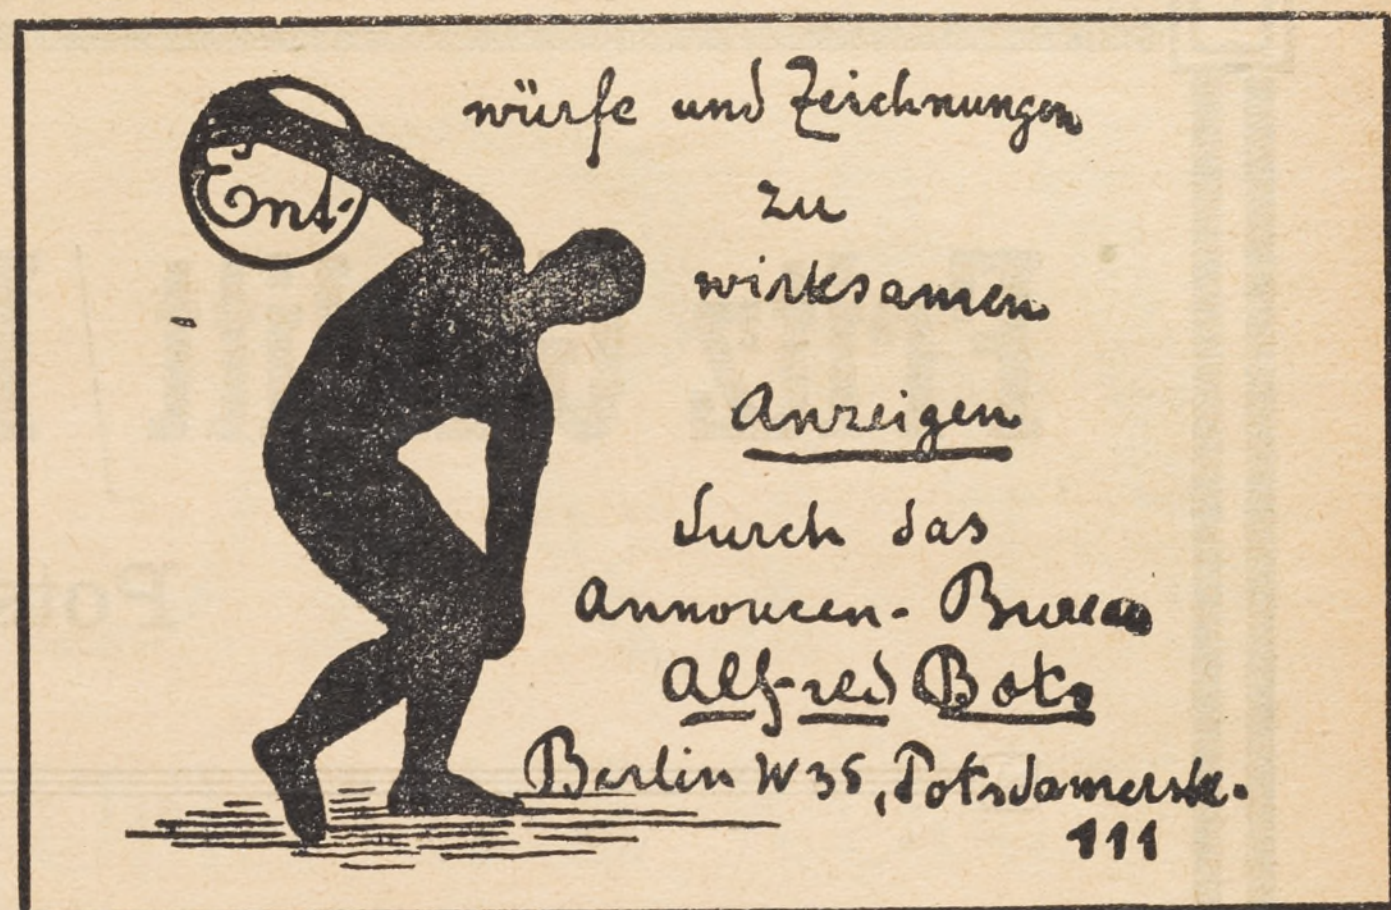 Ent-
würfe und Zeichnungen
zu
wirksamen
Anzeigen
durch das
Annoncen-Bureau
Alfred Bots
Berlin W 35, Potsdamerstr.
111